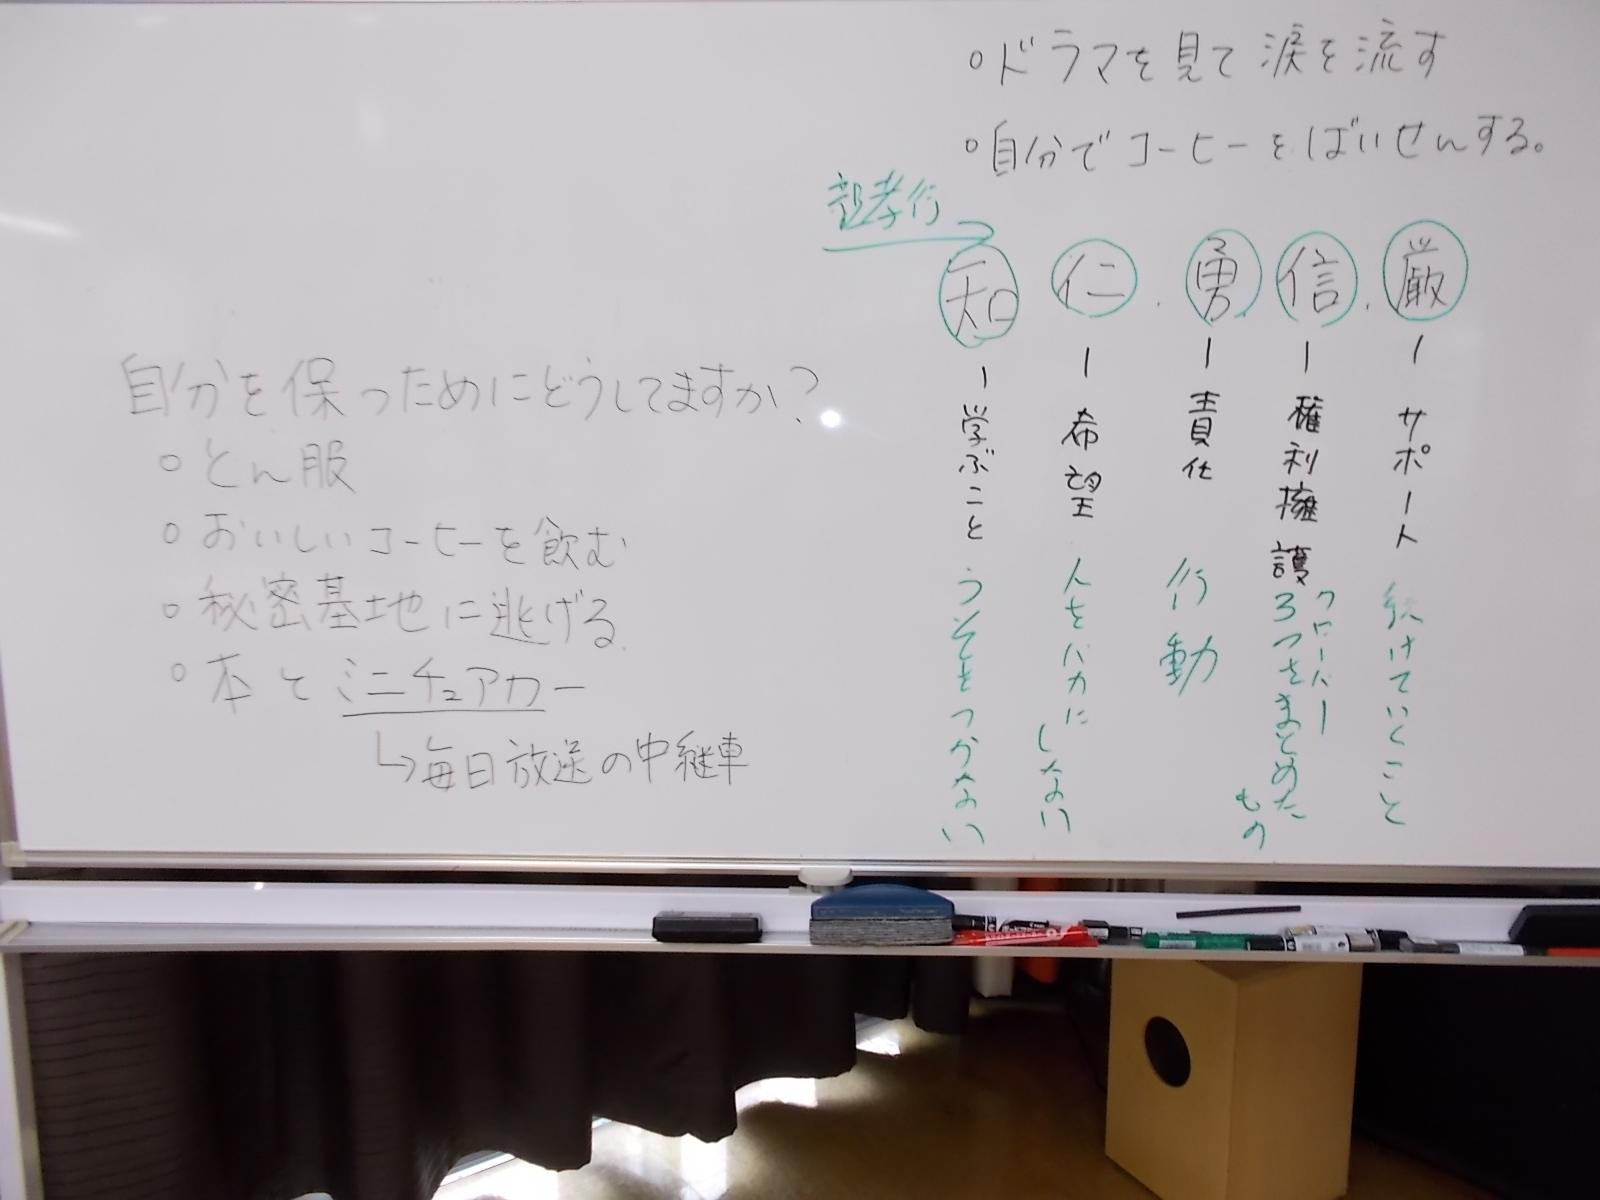 自分を保っためにどうしてますか?
○とん服
○おいしいコーヒーを飲む
○秘密基地に逃げる
○本とミニチュアカー
↳毎日放送の中継車
○ドラマを見て涙を流す
○自分でコーヒーをばいせんする。
親孝行
知ー学ぶこと
うそをつかない
仁ー希望
人をバカにしない
勇ー責任
行動
信ー権利擁護
クローバー
3つをまとめたもの
厳ーサポート
続けていくこと